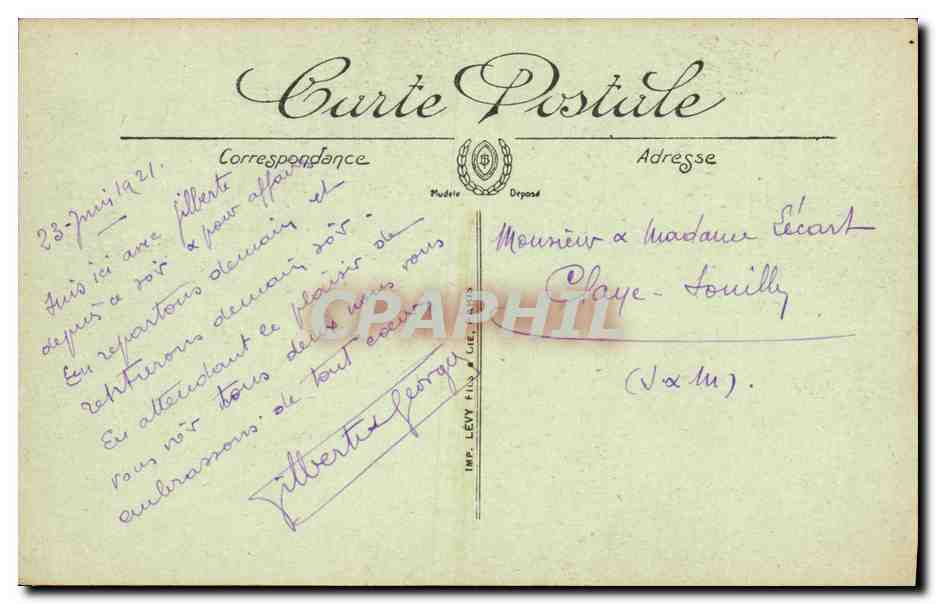 Carte Postale
Correspondance
Adresse
Modèle Déposé
23-Juin 1921.
Suis ici avec Gilberte
depuis ce soir & pour affaires
En repartons demain et
rentrerons demain soir.
En attendant le plaisir de
vous voir tous deux nous vous
embrassons de tout coeur
Gilberte & Georges
IMP. LÉVY FILS & CIE, PARIS
Monsieur & Madame Lécart
Claye-Souilly
(S & M).
CPAPHIL